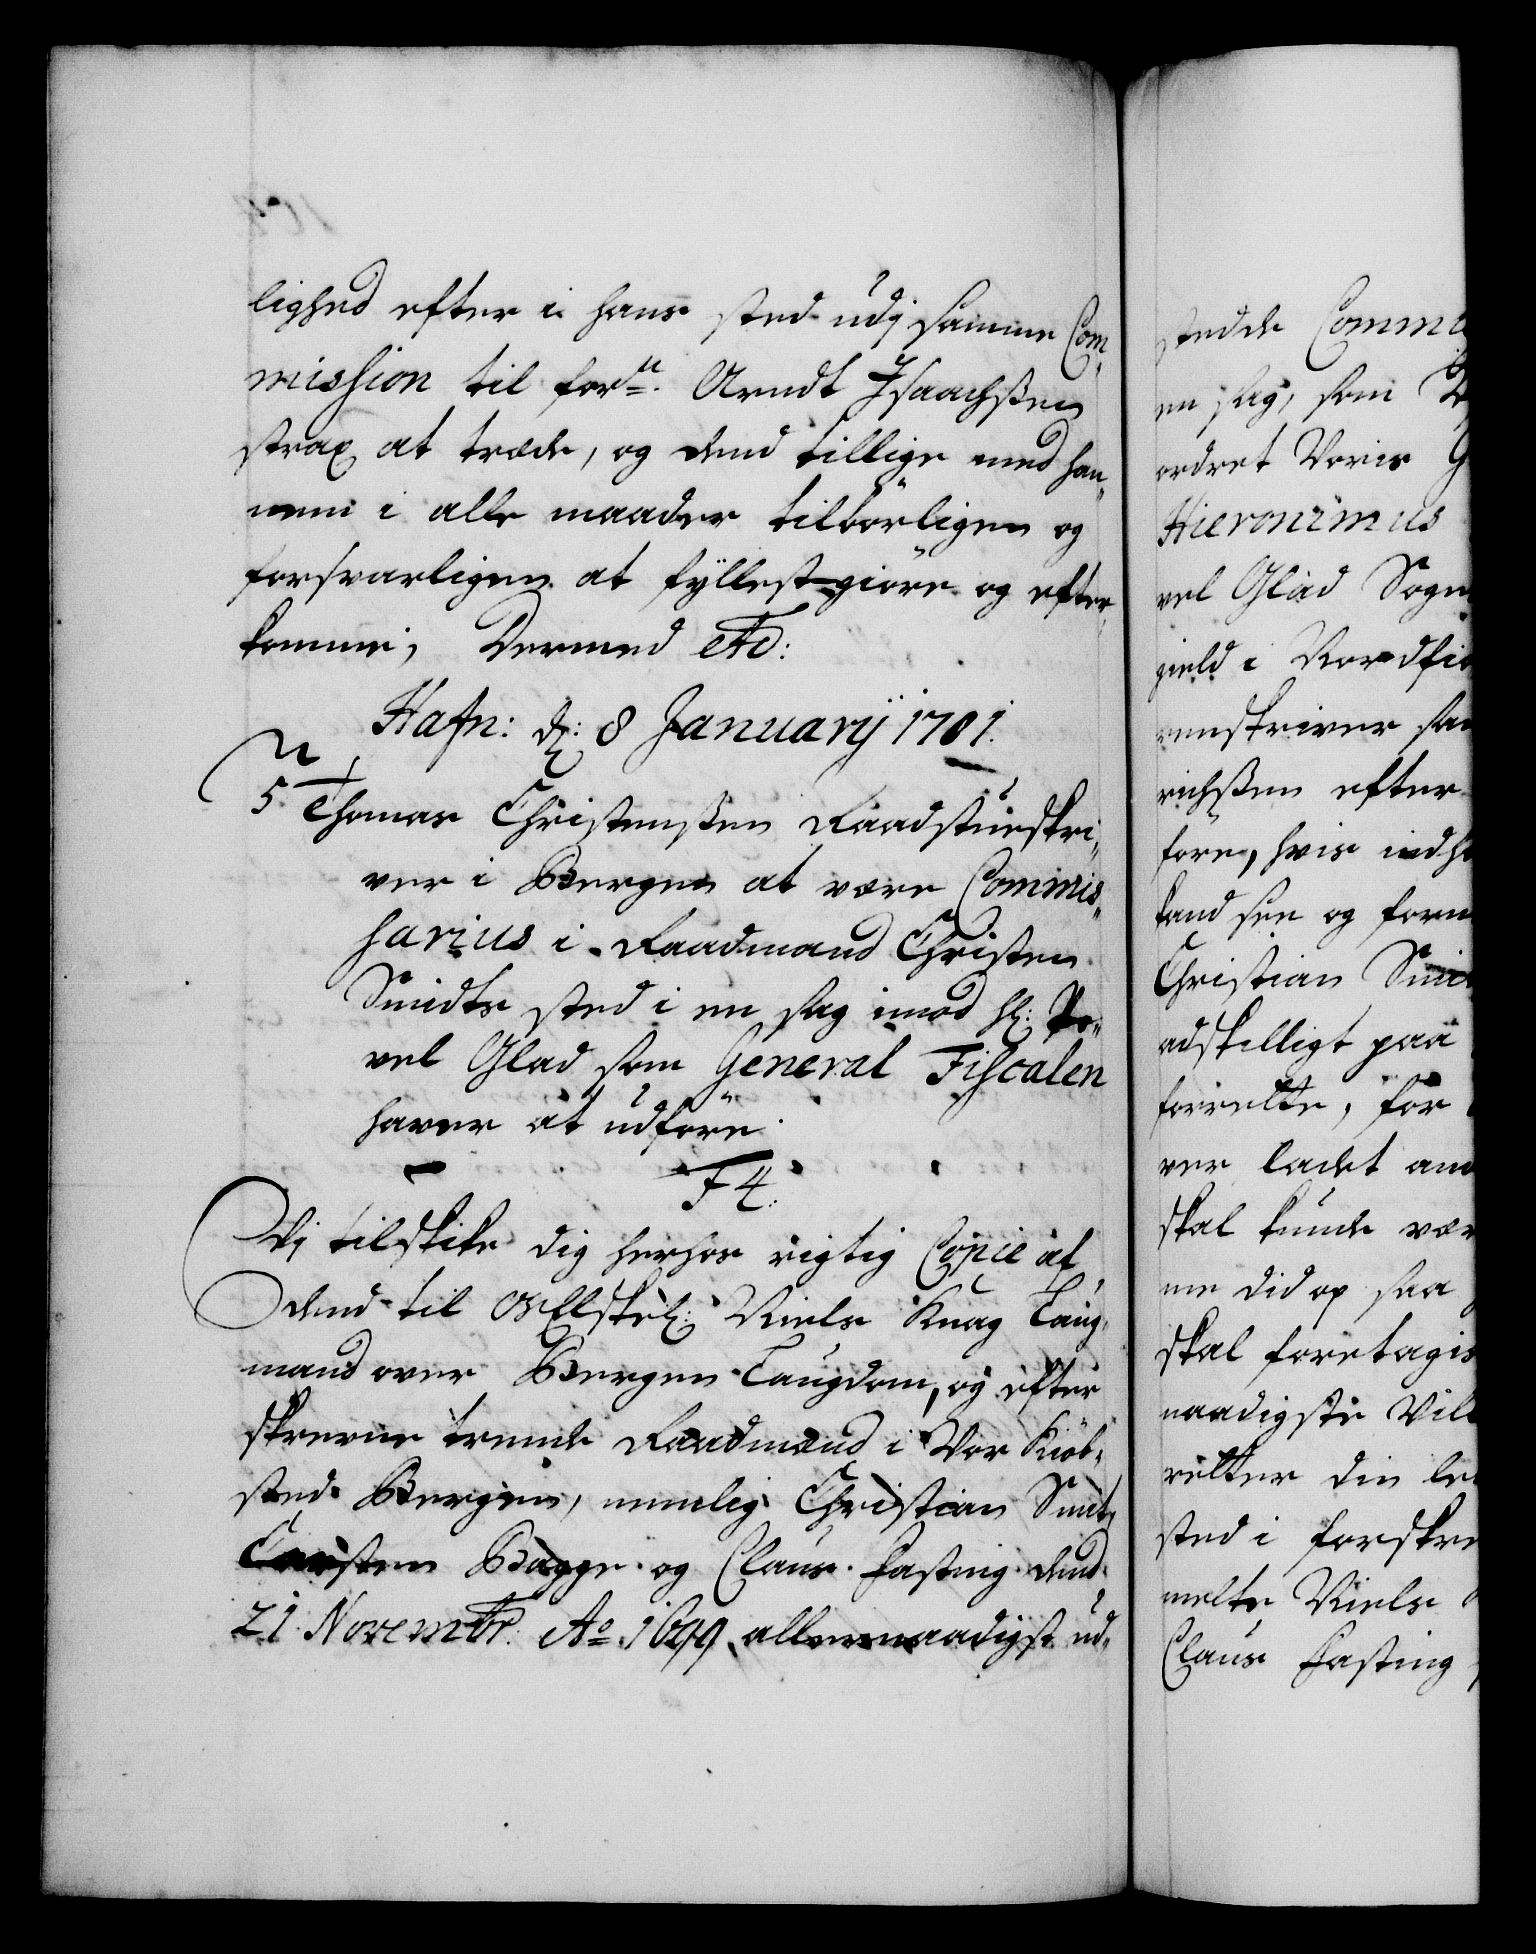 lighed efter i hans sted udj samme Com„
mission til forne. Arndt Isaachssen
strax at træde, og dend tillige med han„
nem i alle maader tilbörligen og
forsvarligen at fyllestgiöre og efter„
komme, Dermed etc:
Hafn: d: 8 Januarij 1701.
5. Thomas Christenssen Raadstueskri„
ver i Bergen at være Commis„
sarius i Raadmand Christen
Smidts sted i en sag imod Hr: Po„
vel Glad som General Fiscalen
haver at udföre.
F 4.
Vj tilskike dig herhos rigtig Copie af
dend til OsElskel: Niels Knag Laug„
mand over Bergen Laugdom, og efter
skrevne trende Raadmænd i Vor Kiöb„
sted Bergen, nemlig Christian Smit,
Carsten Bagge og Claus Fasting dend
21 Novembr: Ao 1699 allernaadigst ud„
stedde Commi
en sag, som V
ordret Voris G
Hieronimus
vel Glad Sogne
gield i Nordfio
renskriver sa
richssen efter
före, hvis indh
kand see og forn
Christian Smit
adskilligt paa
forrette, for
ver ladet an
skal kunde vær
me did op saa
skal foretagis
naadigste Vil
retter din le
sted i forskre
melte Niels
Claus Fasting